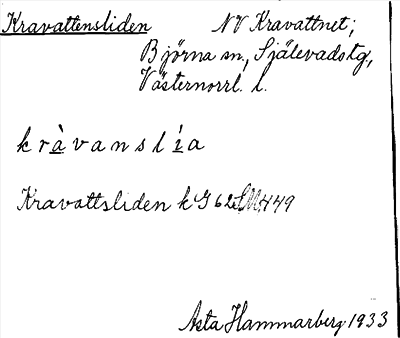 Kravattensliden NV Kravattnet;
Björna sn, Själevads tg,
Västernorrl. l.
kràvanslía
Kravattsliden kG62SM449
Asta Hammarberg 1933